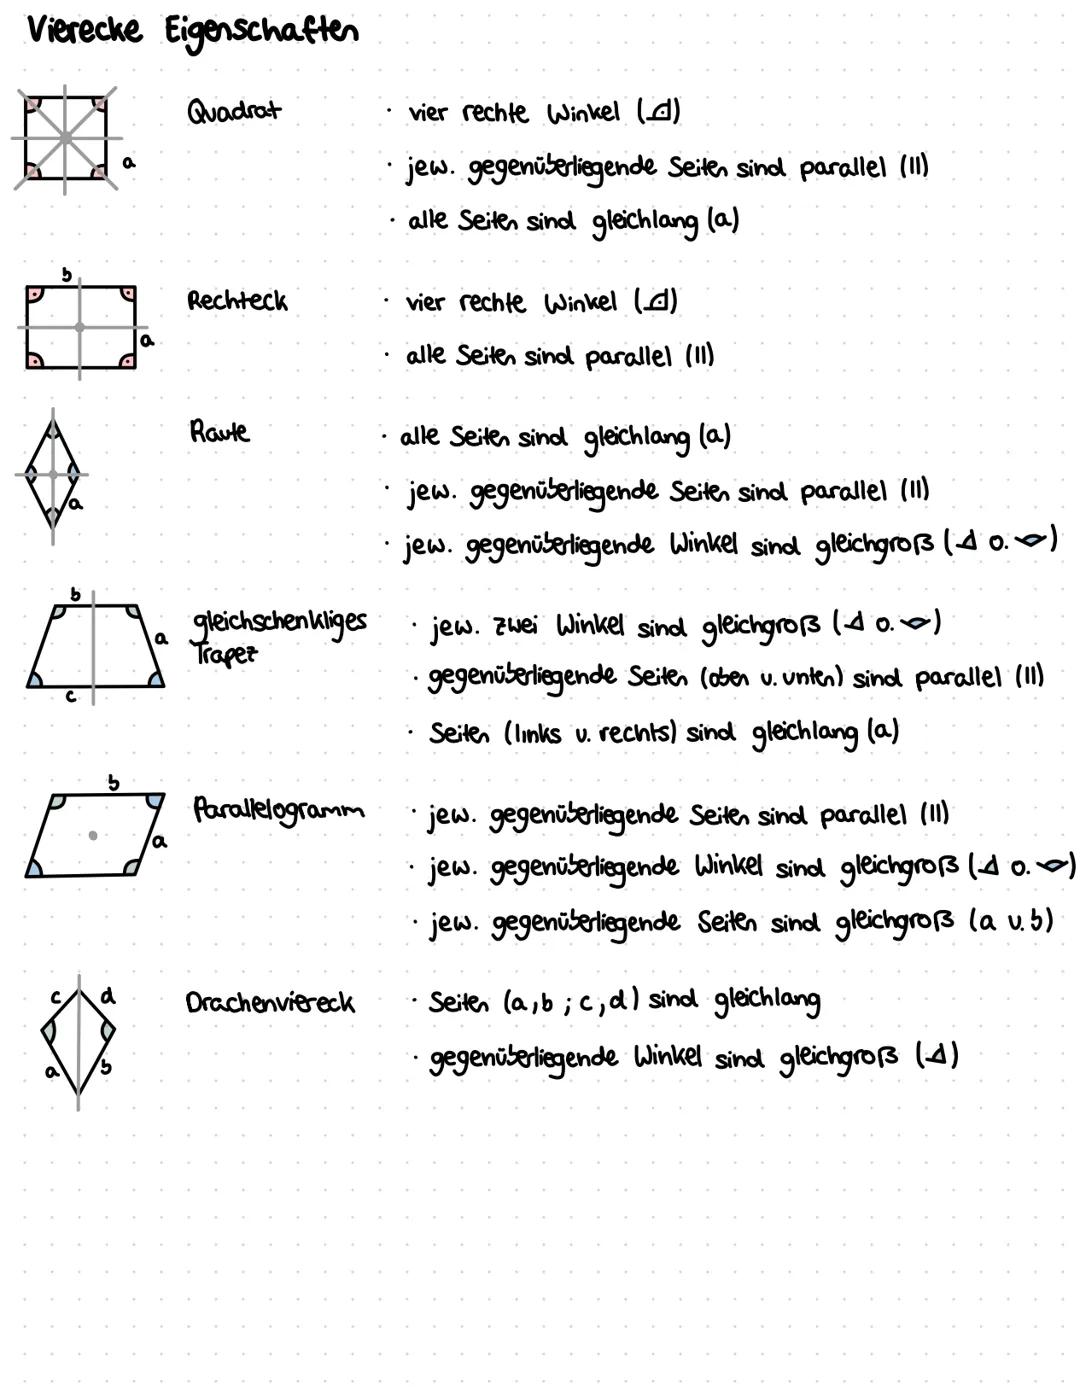 Vierecke Eigenschaften
Quadrat
· vier rechte Winkel (⊿)
· jew. gegenüberliegende Seiten sind parallel (||)
a
· alle Seiten sind gleichlang (a)
b
Rechteck
· vier rechte Winkel (⊿)
a
· alle Seiten sind parallel (||)
Raute
· alle Seiten sind gleichlang (a)
· jew. gegenüberliegende Seiten sind parallel (||)
a
· jew. gegenüberliegende Winkel sind gleichgroß ( o. )
b
gleichschenkliges
Trapez
· jew. zwei Winkel sind gleichgroß ( o. )
a
· gegenüberliegende Seiten (oben u. unten) sind parallel (||)
c
· Seiten (links u. rechts) sind gleichlang (a)
b
Parallelogramm
· jew. gegenüberliegende Seiten sind parallel (||)
a
· jew. gegenüberliegende Winkel sind gleichgroß ( o. )
· jew. gegenüberliegende Seiten sind gleichgroß (a u. b)
c d
Drachenviereck
· Seiten (a, b ; c, d) sind gleichlang
a b
· gegenüberliegende Winkel sind gleichgroß ( )